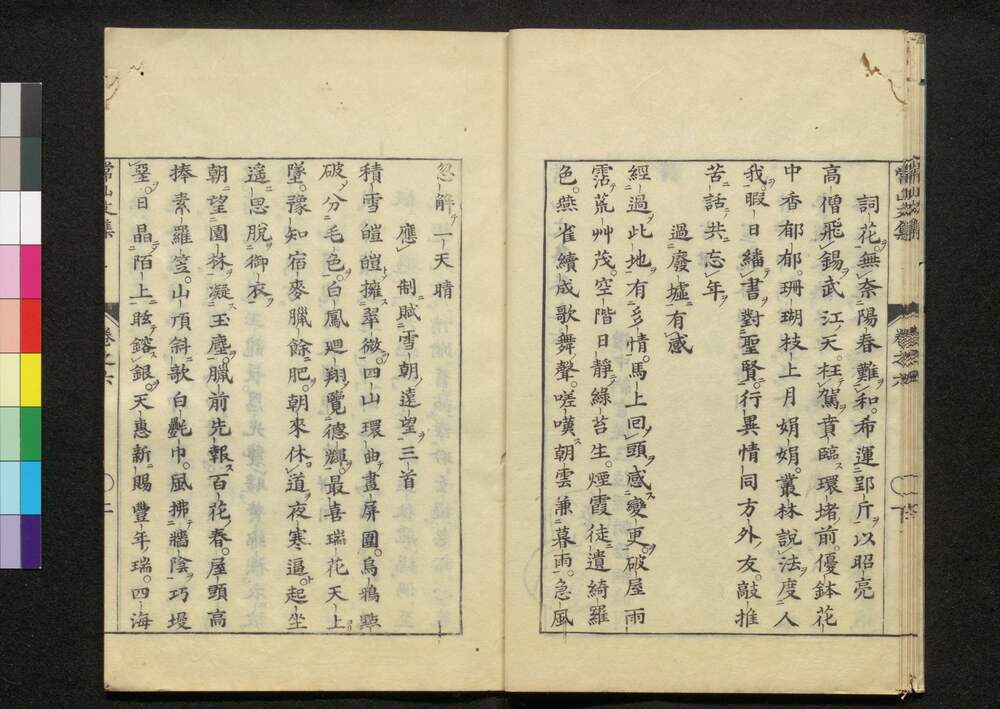 詞花無奈陽春難和希運郢斤以昭亮
高僧飛錫武江天枉駕賁臨環堵前優鉢花
中香郁郁珊瑚枝上月娟娟叢林說法度人
我暇日繙書對聖賢行異情同方外友敲推
苦話共忘年
過廢墟有感
經過此地有多情馬上回頭感變更破屋雨
霑荒艸茂空階日靜綠苔生煙霞徒遺綺羅
色燕雀續成歌舞聲嗟嘆朝雲兼暮雨急風
忽解一天晴
應制賦雪朝遠望三首
積雪皚皚擁翠微四山環曲畫屏圍烏鴉點
破分毛色白鳳廻翔覽德輝最喜瑞花天上
墜豫知宿麥臘餘肥朝來休道夜寒逼起坐
遥思脫御衣
朝望園林凝玉塵臘前先報百花春屋頭高
捧素羅笠山頂斜歌白艷巾風拂牆陰巧墁
堊日晶陌上眩鎔銀天惠新賜豐年瑞四海
常山文集 卷之六